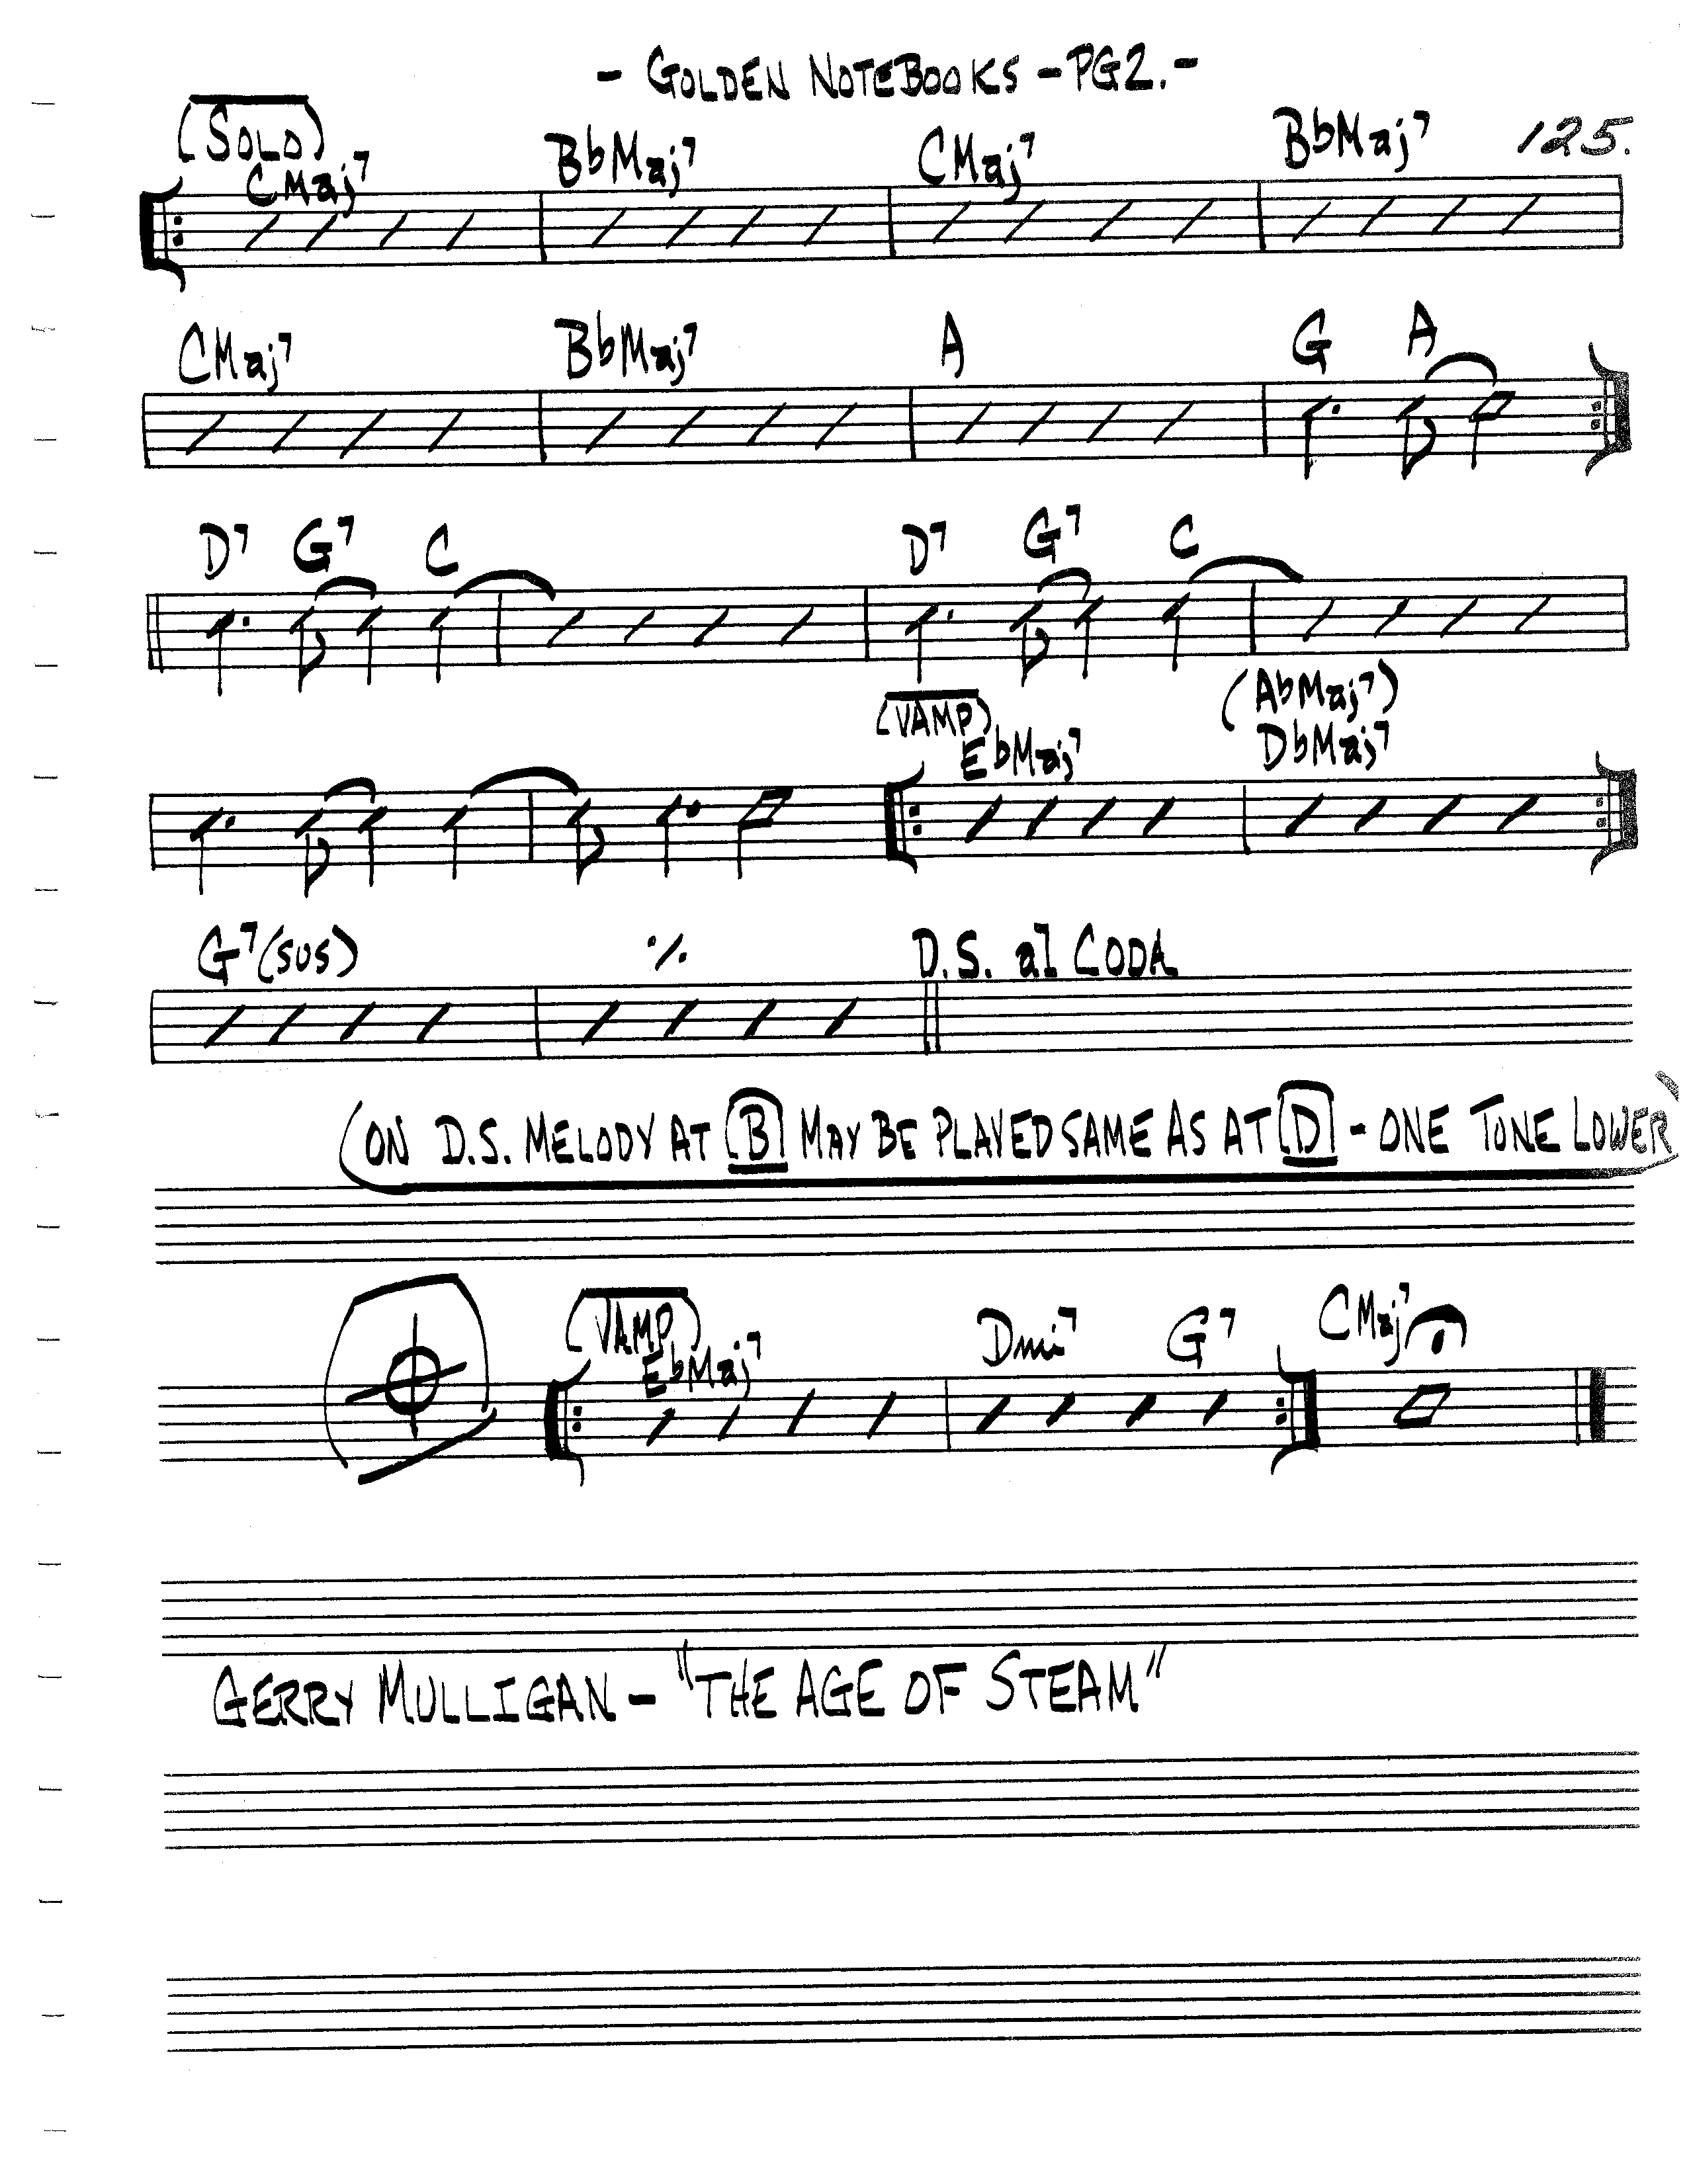 - GOLDEN NOTEBOOKS - PG2. -
125.
(SOLO)
CMaj7 BbMaj7 CMaj7 BbMaj7
CMaj7 BbMaj7 A G A
D7 G7 C D7 G7 C
(VAMP) (AbMaj7)
EbMaj7 DbMaj7
G7(SUS) ٪ D.S. al CODA
(ON D.S. MELODY AT B MAY BE PLAYED SAME AS AT D - ONE TONE LOWER)
(VAMP)
EbMaj7 Dmi7 G7 CMaj7
GERRY MULLIGAN - "THE AGE OF STEAM"